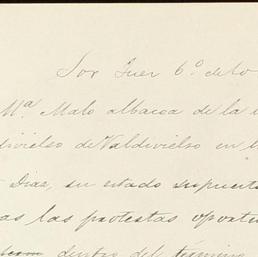 Sor Juez 6º de lo
Mª. Malo albacea de la
divielso de Valdivielso en
Diaz, su estado supuesto
as las protestas oportu
dentro del término